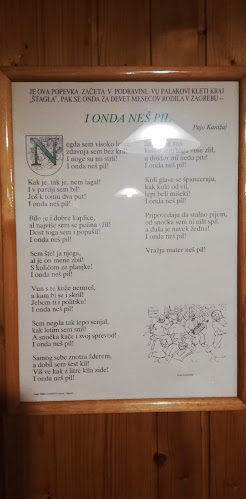 JE OVA POPEVKA ZAČETA V PODRAVINI, VU PALAKOVI KLETI KRAJ
"ŠTAGLA", PAK SE ONDA ZA DEVET MESECOV RODILA V ZAGREBU
I ONDA NEŠ PIL
Pajo Kanižaj
Negda sem visoko
zdavnja sem bez
I noge su mi
I onda neš pil!
Kak je, tak je, nem lagal!
I v partiji sem bil!
Još k tomu dva put!
I onda neš pil!
Bilo je i dobre kaplice,
al najviše sem se
Dost toga sem i popušil!
I onda neš pil!
Sem štel ja njega,
al je on mene zbil!
S kulicom za
I onda neš pil!
Vun s te kože nemreš,
a kam bi se i skril!
Jebem ti politiku!
I onda neš pil!
Sem negda tak lepo senjal,
kak letim sem snil!
A snočka kače i svoj sprevod!
I onda neš pil!
Samog sebe znotra žderem,
a dobil sem šest kil!
Viš ve kak z lüre kila zide!
I onda neš pil!
zbil,
a dovlov mi zeda piti!
I onda neš pil!
Koš glave se španceraju,
kak kolo od vil,
lepi beli mišeki!
I onda neš pil!
Pripovedaju da stalno pijem,
od snočka sem ni išče spil,
a duša je navek žedna!
I onda neš pil!
Vražja mater neš pil!